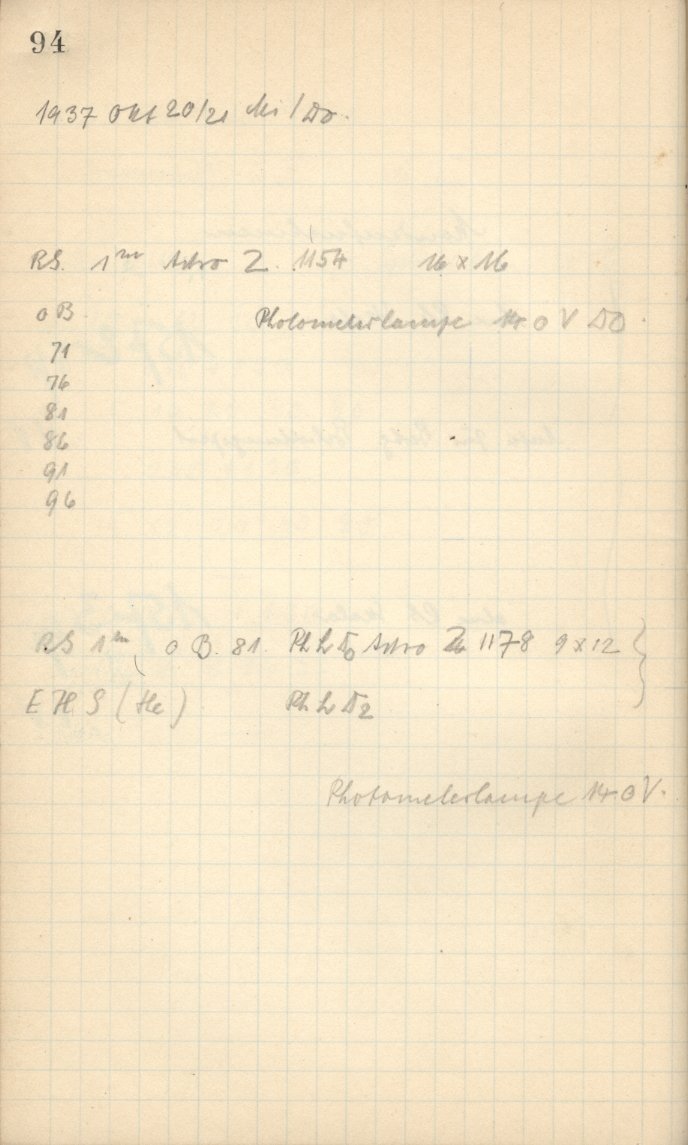 94
1937 Okt 20/21 Mi/Do.
RS. 1m Astro Z. 1154 16 x 16
o B. Photometerlampe 14.0 V DO
71
76
81
86
91
96
RS 1m, o B. 81. Ph L Astro 1178 9x12
E H S (He) Ph L
Photometerlampe 14.0 V.